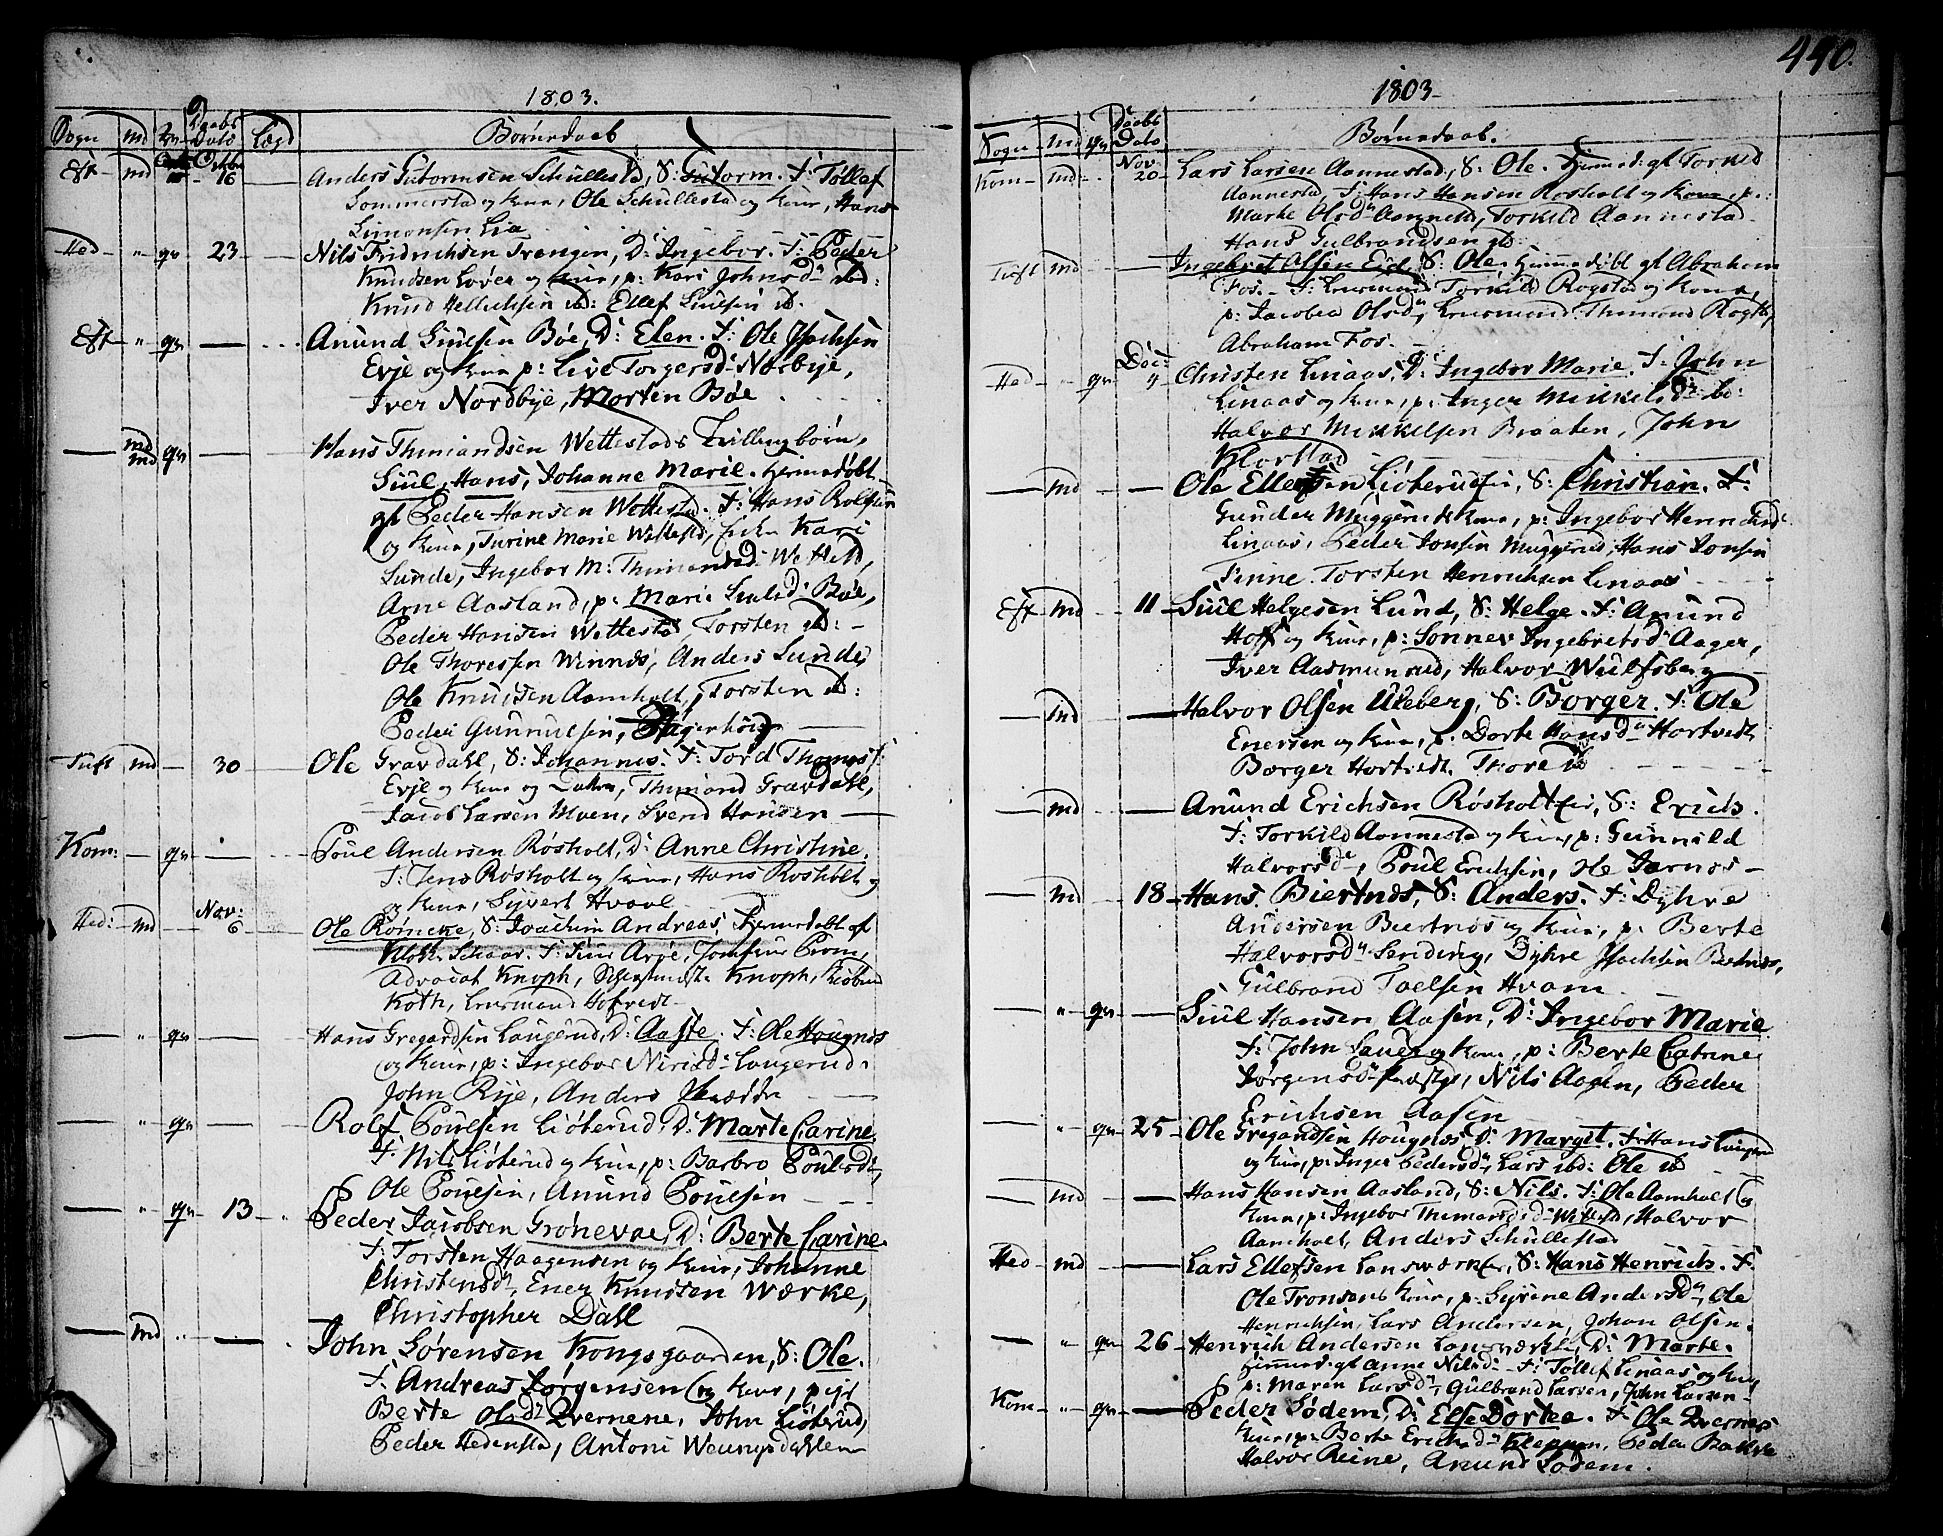 1803.
Sogn md qv Daabs Dato Lægd Børnedaab
Eft md Octbr 16 Anders Gutormsen Schullestad, S: Gutorm. F: Tollef
Sommerstad og Kone, Ole Schullestad og Kone, Hans
Simonsen Lia
Hed " qv 23 Nils Fridrichsen Trengen, D: Ingebor. F: Peder
Knudsen Lover og Kone, p: Kari Johnsd ibd:
Knud Hellichsen ibd: Ellef Siulsen ib.
Eft " qv Anund Siulsen Bøe, D: Elen. F: Ole Isachsen
Evje og Kone p: Live Torgersd Nordbye,
Iver Nordbye, Morten Bøe
md md qv Hans Thimandsen Wettestads Tvillingbørn,
Siul, Hans, Johanne Marie. Hjemedøbt
af Peder Hansen Wettestad. F: Hans Rolfsen
og Kone, Turine Marie Wettestd, Kari
Sunde, Ingebor M: Thimansd Wettestd,
Arne Aasland, p: Marie Siulsd Bøe,
Peder Hansen Wettestad, Torsten ibd:
Ole Thoresen Winnes, Anders Sunde,
Ole Knudsen Aamholt, Torsten ibd:
Peder Gunnulsen,
Tuft md 30 Ole Gravdahl, S: Johannes. F: Tord Thomes:
Evje og Kone og Datter, Thimand Gravdahl,
Jacob Larsen Moen, Svend Hansen
Kom: qv Poul Andersen Røsholt, D: Anne Christine.
F: Jens Røsholt og Kone, Hans Rosholt
og Kone, Syvert Hvale
Hed: md Nov: 6 Ole Römcke, S: Joachim Andreas, Hjemedøbt af
Klok: Schaar. F: Siur Arje, Jomfrue Prom,
Advocat Knoph, Knoph,
Koth, Lensmand Hofvedt
" qv Hans Gregardsen Laugerud, D: Aaste. F: Ole Hougnes
og Kone, p: Ingebor Nirisd Laugerud
John Rije, Anders
" qv Rolf Poulsen Liøterud, D: Marte Carine.
F: Nils Liøterud og Kone, p: Barbro Poulsd,
Ole Poulsen, Anund Poulsen
" qv 13 Peder Jacobsen Grønevae, D: Berte Carine.
F: Torsten Haagensen og Kone, Johanne
Christensd, Ener Knudsen Wærke,
Christopher Dahl
md " John Sørensen Kongsgaarden, S: Ole.
F: Andreas Jørgensen og Kone, pige
Berte Olsd Qvernene, John Liøterud,
Peder Hedenstad, Antoni
440.
1803
Sogn md qv Daabs Dato Børnedaab.
Kom md Nov 20 Lars Larsen Aannestad, S: Ole. Hjemed: af Torkild
Aannestad. F: Hans Hansen Rosholt og Kone, p:
Marte Olsd Aannestd, Torkild Aannestad
Hans Gulbrandsen ib:
Tuft md Ingebret Olsen Eid, S: Ole. Hjemedøbt af Abraham
Fos. F: Lensmand Torkild Rogstad og Kone,
p: Jacobea Olsd, Lensmand Thimand Rogstd,
Abraham Fos.
Hed " qv Dec: 4 Christen Linaas, D: Ingebor Marie. F: John
Linaas og Kone, p: Inger Mikkelsd ib:
Halvor Mikkelsen Braaten, John
Klorstad
md Ole Ellefsen Liøterud, S: Christian. F:
Gunder Muggerud Kone, p: Ingebor Henrichsd
Linaas, Peder Jonsen Muggerud, Hans Jonsen
Finne. Torsten Henrichsen Linaas
Eft md 11 Siul Helgesen Lund, S: Helge. F: Anund
Hoff og Kone, p: Sonnev Ingebretsd Aager,
Iver Aasmunrud, Halvor Wulfsberg
md Halvor Olsen Ulleberg, S: Borger. F: Ole
Enersen og Kone, p: Dorte Hansd Hartvedt,
Børger Hortvedt, Thore ib
md Anund Erichsen Røsholt, S: Erich.
F: Torkild Aannestad og Kone, p: Gunnild
Halvorsd, Poul Erichsen, Ole Jernes
md 18 Hans Biertnes, S: Anders. F: Dyhre
Andersen Biertnes og Kone, p: Berte
Halvorsd Senderig, Dyhre Isachsen Bertnes,
Gulbrand Toelsen Hvam
" qv Siul Hansen Aasen, D: Ingebor Marie
F: John Sauer og Kone, p: Berte Catrine
Jørgensd Præstge, Nils Aasen, Peder
Erichsen Aasen
" qv 25 Ole Gregardsen Hougnes, D: Margit. F: Hans
og Kone, p: Inger Pedersd, Lars ibd: Ole ib
md Hans Hansen Aasland, S: Nils. F: Ole Aamholt og
Kone, p: Ingebor Themandsd Wettestd, Halvor
Aamholt, Anders Schullestad
Hed md Lars Ellefsen Lansværk, S: Hans Henrich. F:
Ole Tronsens Kone, p: Syrene Andersd, Ole
Henrichsen, Lars Andersen, Johan Olsen.
" qv 26 Henrich Andersen Lansværk, D: Marte.
Hjemed: af Anne Nilsd F: Tollef Linaas og Kone,
p: Maren Larsd, Gulbrand Larsen, John Larsen
Kom " qv Peder Sødem, D: Else Dortea. F: Ole Qvernes
Kone, p: Berte Erichsd Kleppen, Peder Bakke
Halvor Reine, Anund Sodem.